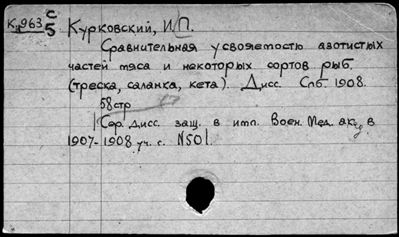 К 963 С/5 Курковский, И.П.
Сравнительная усвояемость азотистых
частей мяса и некоторых сортов рыб
(треска, салака, кета). Дисс. Спб. 1908.
58стр
Сер. дисс. защ. в имп. Воен. Мед. ак. в
1907-1908 уч. г. №50.